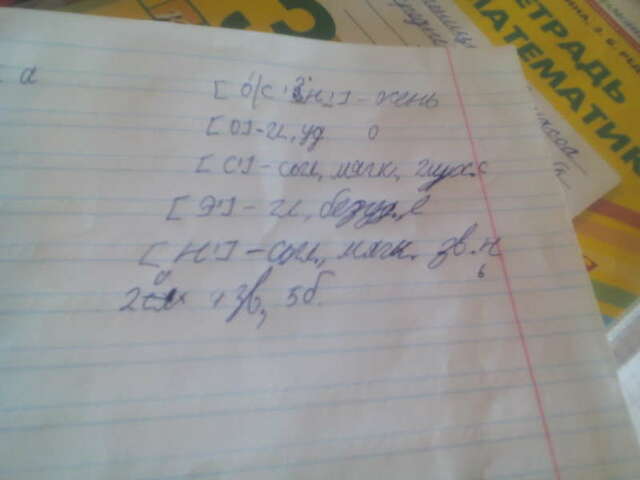 а
[ О́/С' Э Н' ] - осень
[О] - гл, уд о
[С'] - согл, мягк, глух. с
[Э'] - гл, безуд. е
[Н'] - согл, мягк. зв. н
ь
2 4 зв, 5 б.
ТЕТРАДЬ
МАТЕМАТИК